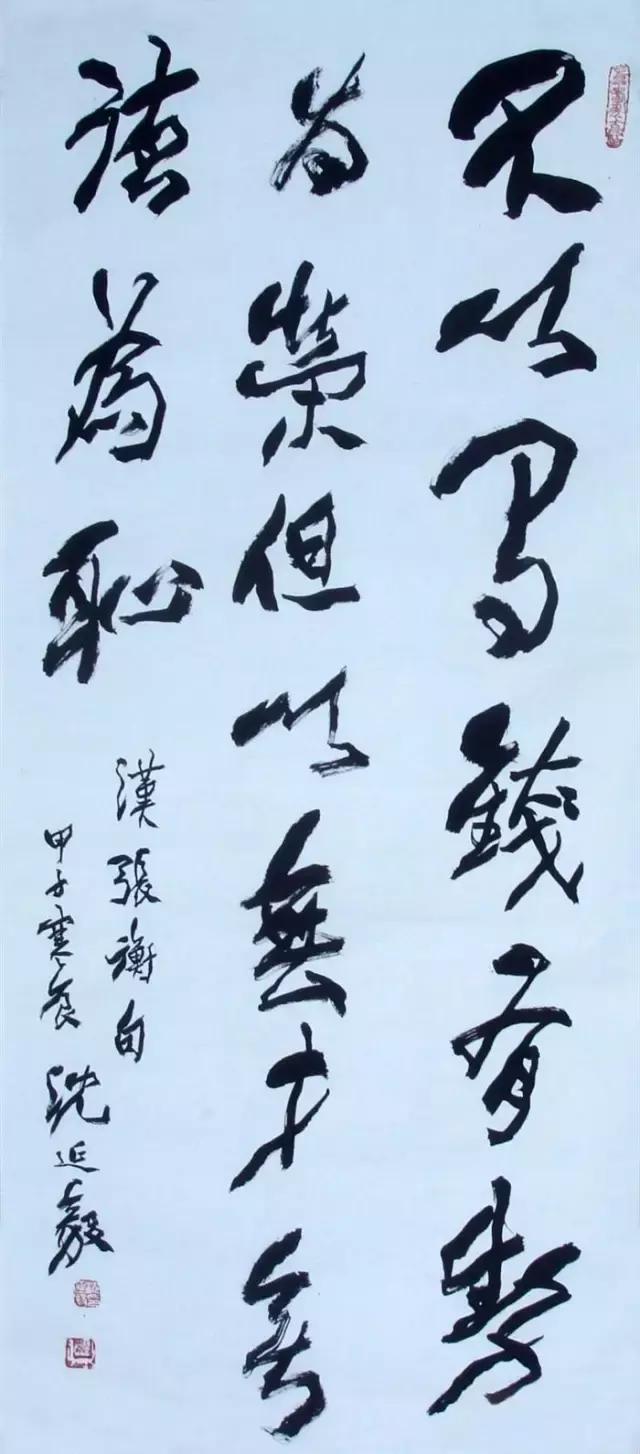 不以錢有勢
为榮但以無才無
德為恥
漢張衡句
甲子寒食沈延毅